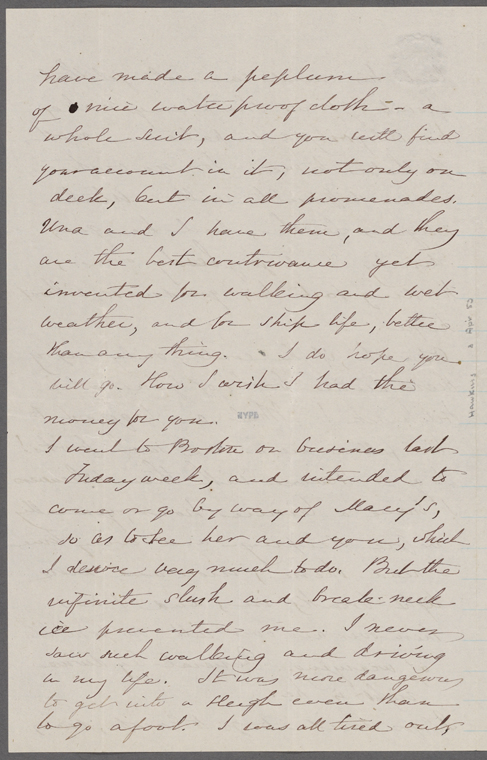 have made a peplum
of nice waterproof cloth - a
whole suit, and you will find
your account in it, not only on
deck, but in all promenades.
Una and I have them, and they
are the best contrivance yet
invented for walking and wet
weather, and for ship life, better
than any thing. I do hope you
will go. How I wish I had the
money for you.
NYPL
I went to Boston on business last
Friday week, and intended to
come or go by way of Mary's,
so as to see her and you, which
I desire very much to do. But the
infinite slush and break-neck
ice prevented me. I never
saw such walking and driving
in my life. It was more dangerous
to get into a sleigh even than
to go afoot. I was all tired out,